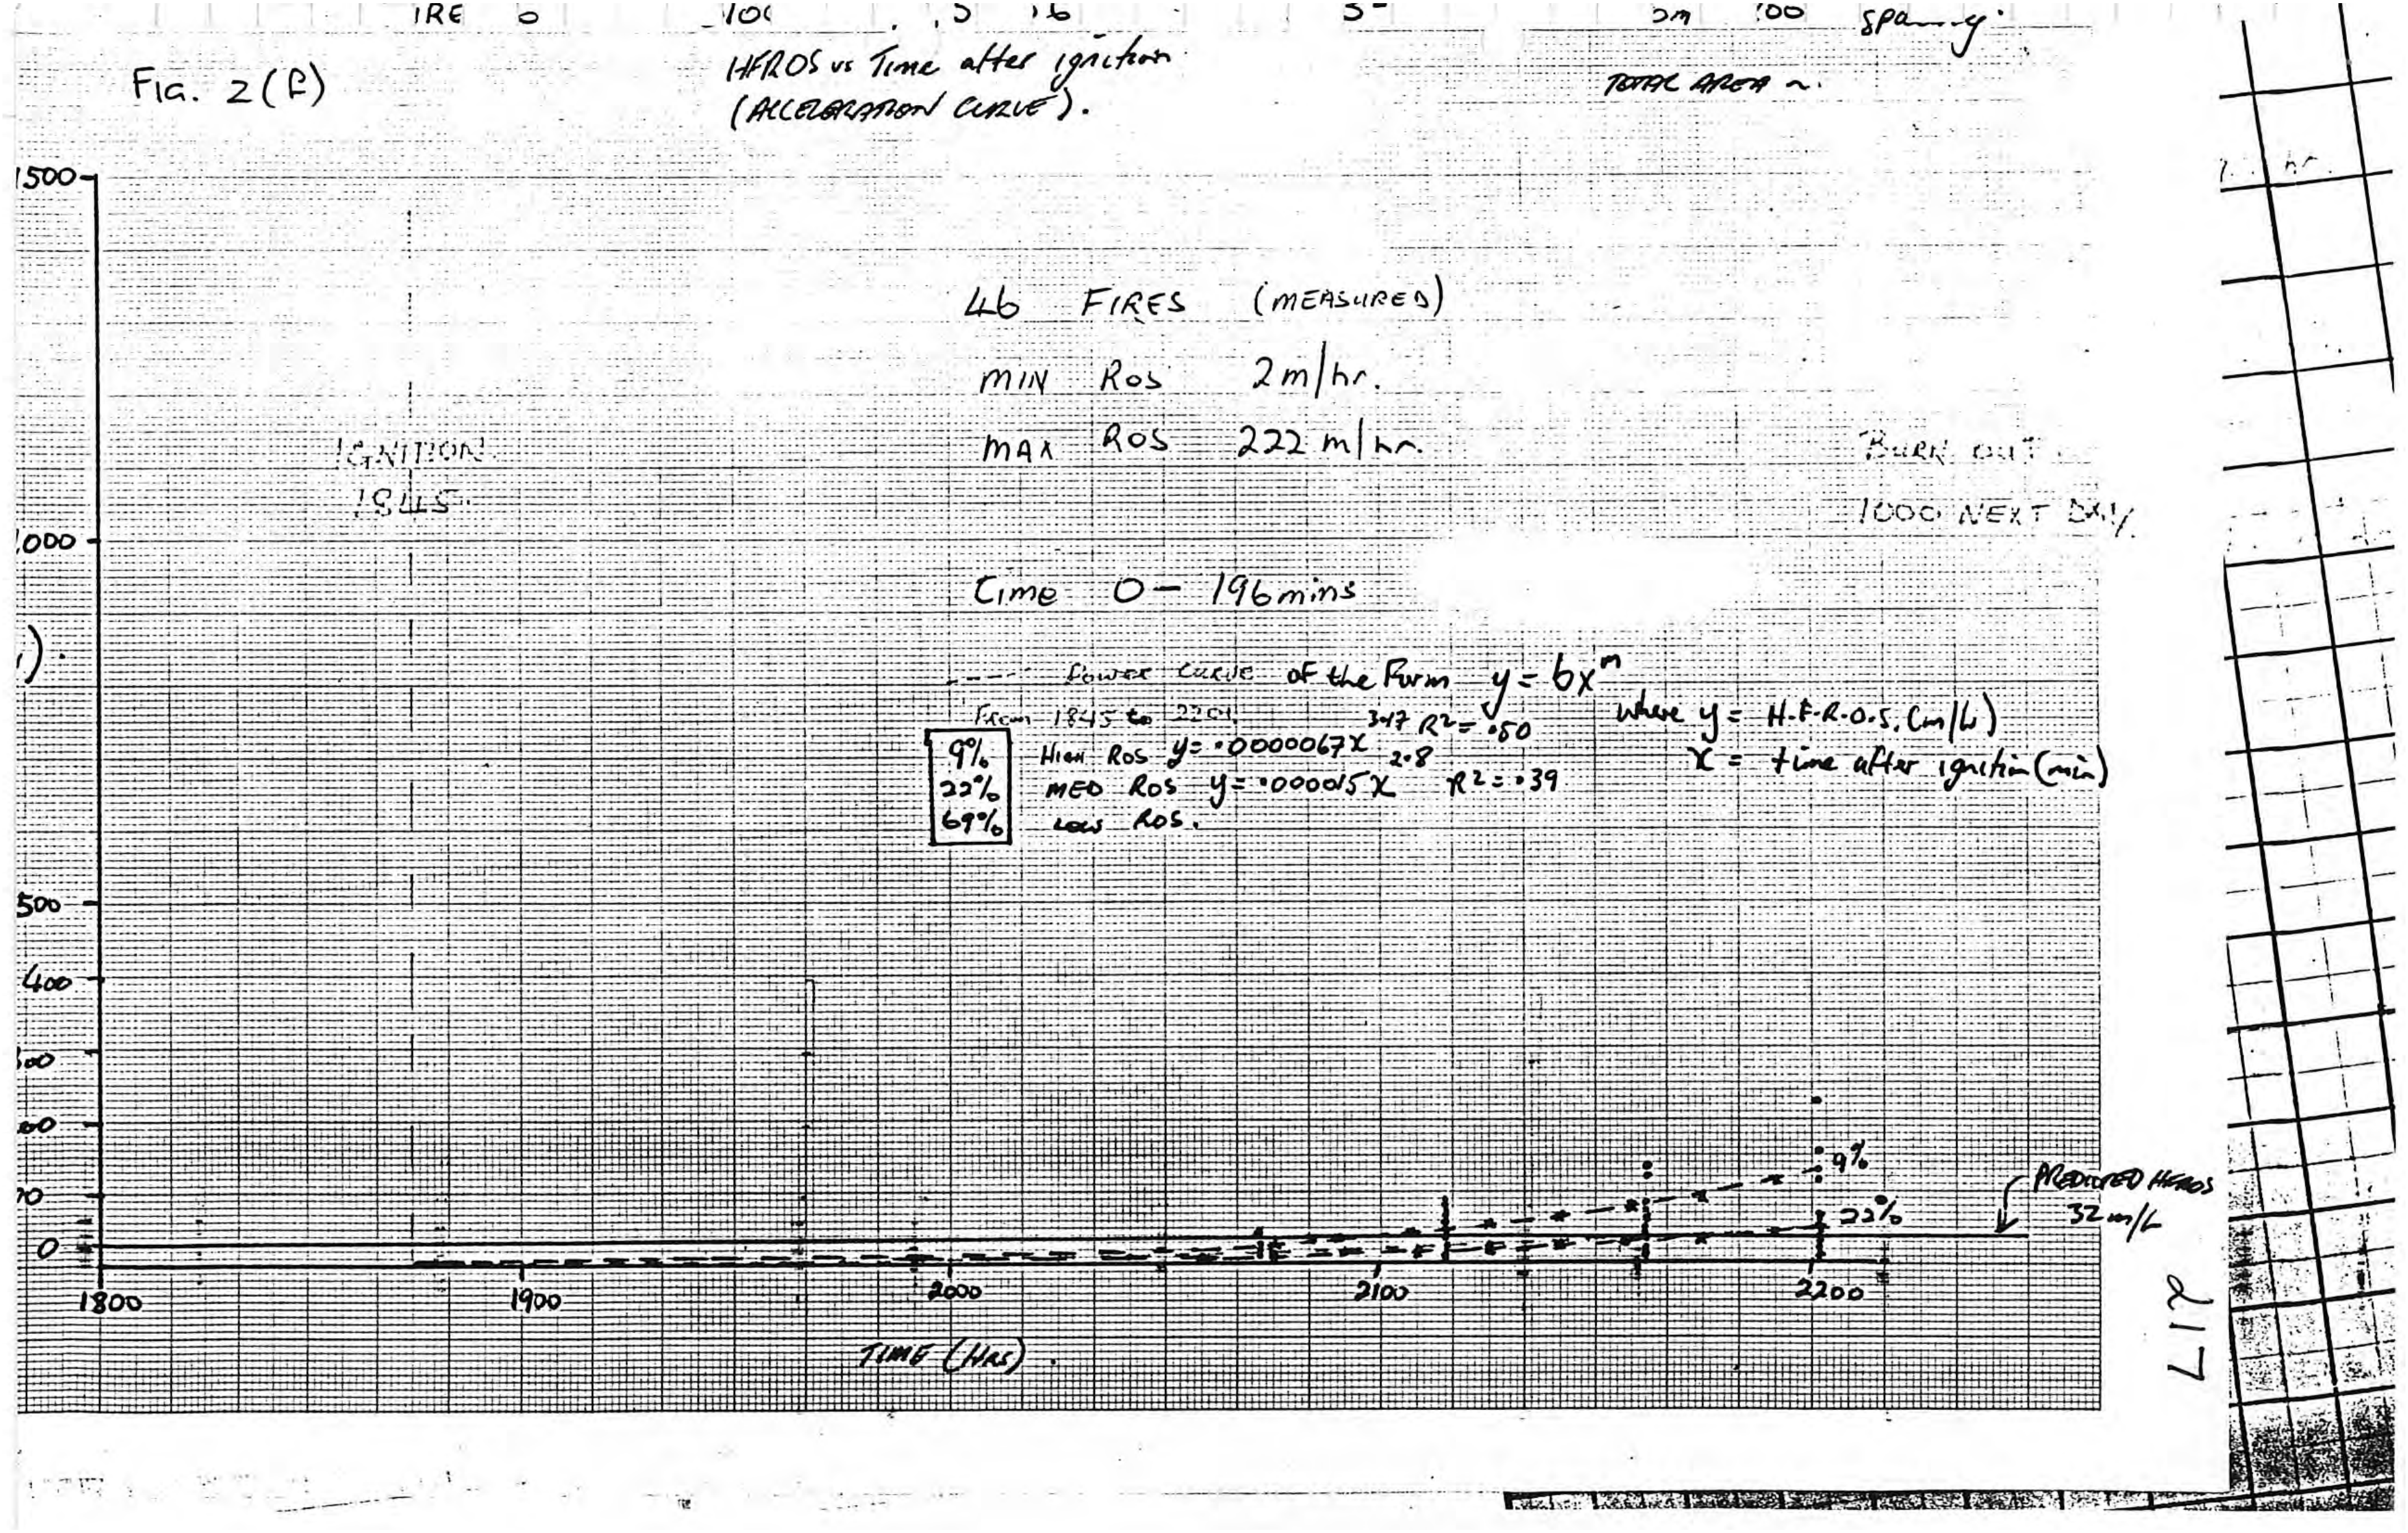 Fig. 2(f)
HFROS vs Time after ignition
(ACCELERATION CURVE).
TOTAL AREA ~.
1500
46 FIRES (MEASURED)
MIN ROS 2m/hr.
MAX ROS 222 m/hr.
IGNITION
1845.
BURN OUT.
1000 NEXT DAY.
000
Time 0 - 196mins
Power Curve of the Form y = bx^m
From 1845 to
where y = H.F.R.O.S. (m/h)
x = time after ignition (min)
9% HIGH ROS y = .0000067x^3.17 R² = .50
22% MED ROS y = .000015x^2.8 R² = .39
69% LOW ROS.
500
400
00
00
0
0
9%
22%
PREDICTED HFROS
32 m/h
1800 1900 2000 2100 2200
TIME (HRS).
217